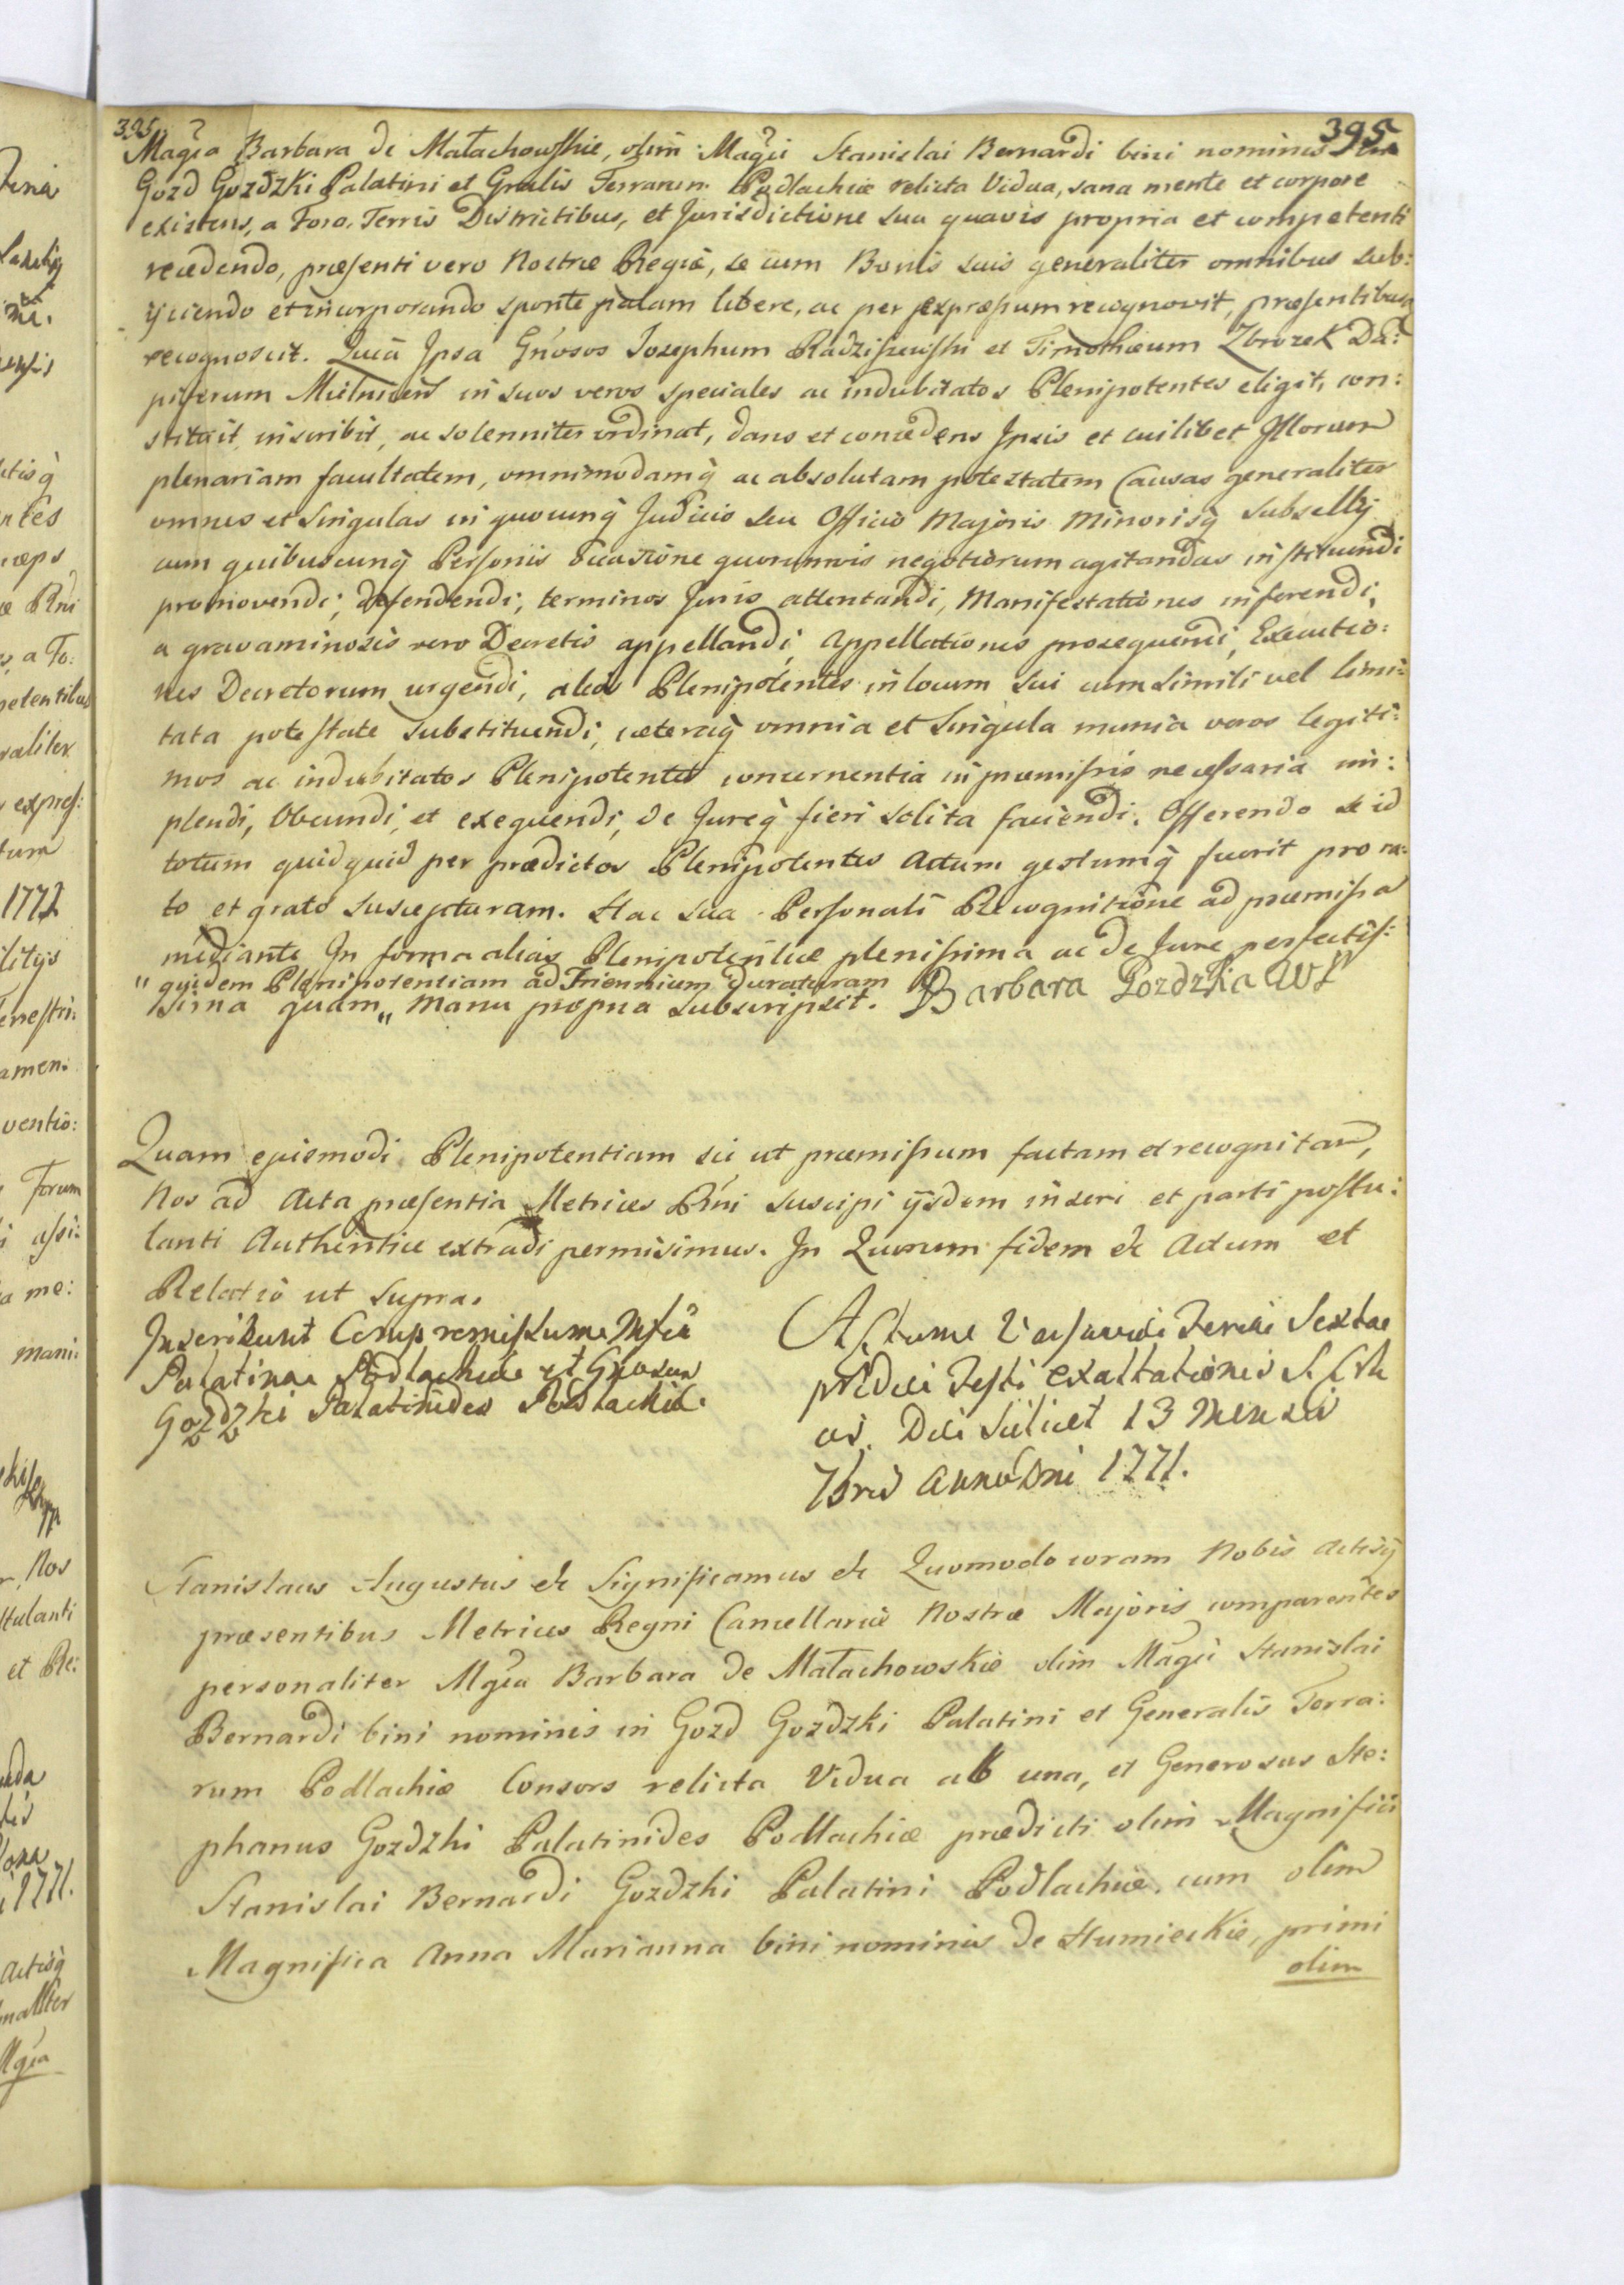 395 395
Mag̃ca Barbara de Małachowskie, olim Mag̃ci Stanislai Bernardi bini nominis in
Gozd Gozdzki Palatini et Gnralis Terrarum Podlachiæ relicta Vidua, sana mente et corpore
existens, a Foro, Terris Districtibus, et Jurisdictione sua quavis propria et competenti
recedendo, præsenti vero Nostræ Regiæ, se cum Bonis suis generaliter omnibus sub:
ijciendo et incorporando sponte palam libere, ac per expræssum recognovit, præsentibusq
recognoscit. Quia Ipsa Gnosos Josephum Radziszewski et Timothæum Zbrozek Da:
piferum Mielnicen in suos veros speciales ac indubitatos Plenipotentes eligit, con:
stituit, inscribit, ac solenniter ordinat, dans et concedens Ipsis et cuilibet Illorum
plenariam facultatem, omnimodamq̀ ac absolutam potestatem Causas generaliter
omnes et Singulas in quocunq̀ Judicio seu Officio Majoris Minorisq̀ Subsellij
cum quibuscunq̀ Personis occasione quorumvis negotiorum agitandas instituendi
promovendi, defendendi, terminos Juris attentandi, Manifestationes inferendi,
a gravaminosis vero Decretis appellandi, Appellationes prosequendi, Executio:
nes Decretorum urgendi, alios Plenipotentes in locum sui cum simili vel limi:
tata potestate substituendi, cæteraq̀ omnia et Singula munia veros legiti:
mos ac indubitatos Plenipotentes concernentia in præmissis necessaria im:
plendi, Obeundi, et exequendi, de Jureq̀ fieri solita faciendi. Offerendo se id
totum quidquid per prædictos Plenipotentes Actum gestumq̀ fuerit pro ra:
to et grato suscepturam. Hac sua Personali Recognitione ad præmissa
mediante In forma alias Plenipotentiæ plenissima ac de Jure perfectis:
" quidem Plenipotentiam ad Triennium duraturam
sima quam " manu propria subscripsit. Barbara Gozdzka WP
Quam ejusmodi Plenipotentiam sic ut præmissum factam et recognitam,
Nos ad Acta præsentia Metrices Rńi suscipi ijsdem inseri et parti postu:
lanti Authentice extradi permisimus. In Quorum fidem etc Actum et
Relatio ut supra.
Inscribunt Compromissum Mfca
Palatina Podlachiæ et Gnosus
Gozdzki Palatinides Podlachiæ.
Actum Varsaviæ Feria Sexta
pridie Festi Exaltationis S. Cru
cis. Die scilicet 13 Mensis
7bris Anno Dni 1771.
Stanislaus Augustus etc Significamus etc Quomodo coram Nobis Actisq̀
præsentibus Metrices Regni Cancellariæ Nostræ Majoris comparentes
personaliter Mgca Barbara de Małachowskie olim Mag̃ci Stanislai
Bernardi bini nominis in Gozd Gozdzki Palatini et Generalis Terra:
rum Podlachiæ Consors relicta Vidua ab una, et Generosus Ste:
phanus Gozdzki Palatinides Podlachiæ prædicti olim Magnifici
Stanislai Bernardi Gozdzki Palatini Podlachiæ cum olim
Magnifica Anna Marianna bini nominis de Humieckie, primi
olim